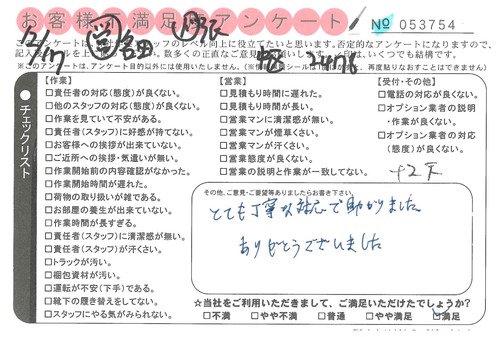 お客様 満足 アンケート
№ 053754
12/17
【作業】
□責任者の対応(態度)が良くない。
□他のスタッフの対応(態度)が良くない。
□作業を見ていて不安がある。
□責任者(スタッフ)に好感が持てない。
□お客様への挨拶が出来ていない。
□ご近所への挨拶・気遣いが無い。
□作業開始前の内容確認がなかった。
□作業開始時間が遅れた。
□荷物の取り扱いが雑である。
□お部屋の養生が出来ていない。
□作業時間が長すぎる。
□責任者(スタッフ)に清潔感が無い。
□責任者(スタッフ)が汗くさい。
□トラックが汚い。
□梱包資材が汚い。
□運転が不安(下手)である。
□靴下の履き替えをしてない。
□スタッフにやる気がみられない。
【営業】
□見積もり時間に遅れた。
□見積もり時間が長い。
□営業マンに清潔感が無い。
□営業マンが煙草くさい。
□営業マンが汗くさい。
□営業態度が良くない。
□営業の説明と作業が一致してない。
【受付・その他】
□電話の対応が良くない。
□オプション業者の説明・作業が良くない。
□オプション業者の対応(態度)が良くない。
チェックリスト
その他、ご意見・ご要望等ありましたらお書き下さい。
とても丁寧な対応で助かりました
ありがとうございました
☆当社をご利用いただきまして、ご満足いただけたでしょうか?
□不満 □やや不満 □普通 □やや満足 □満足